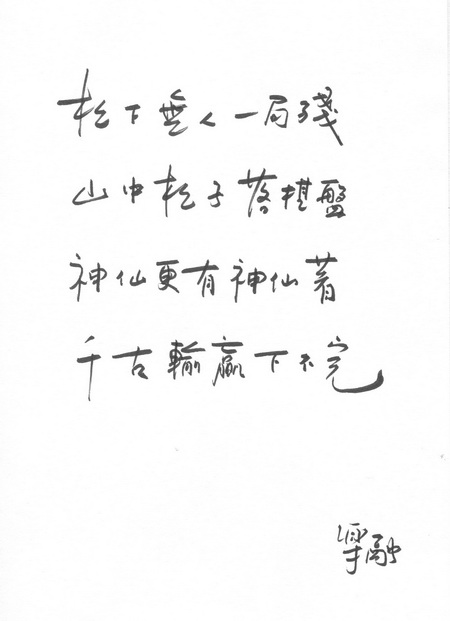 松下無人一局殘
山中松子落棋盤
神仙更有神仙著
千古輸贏下不完